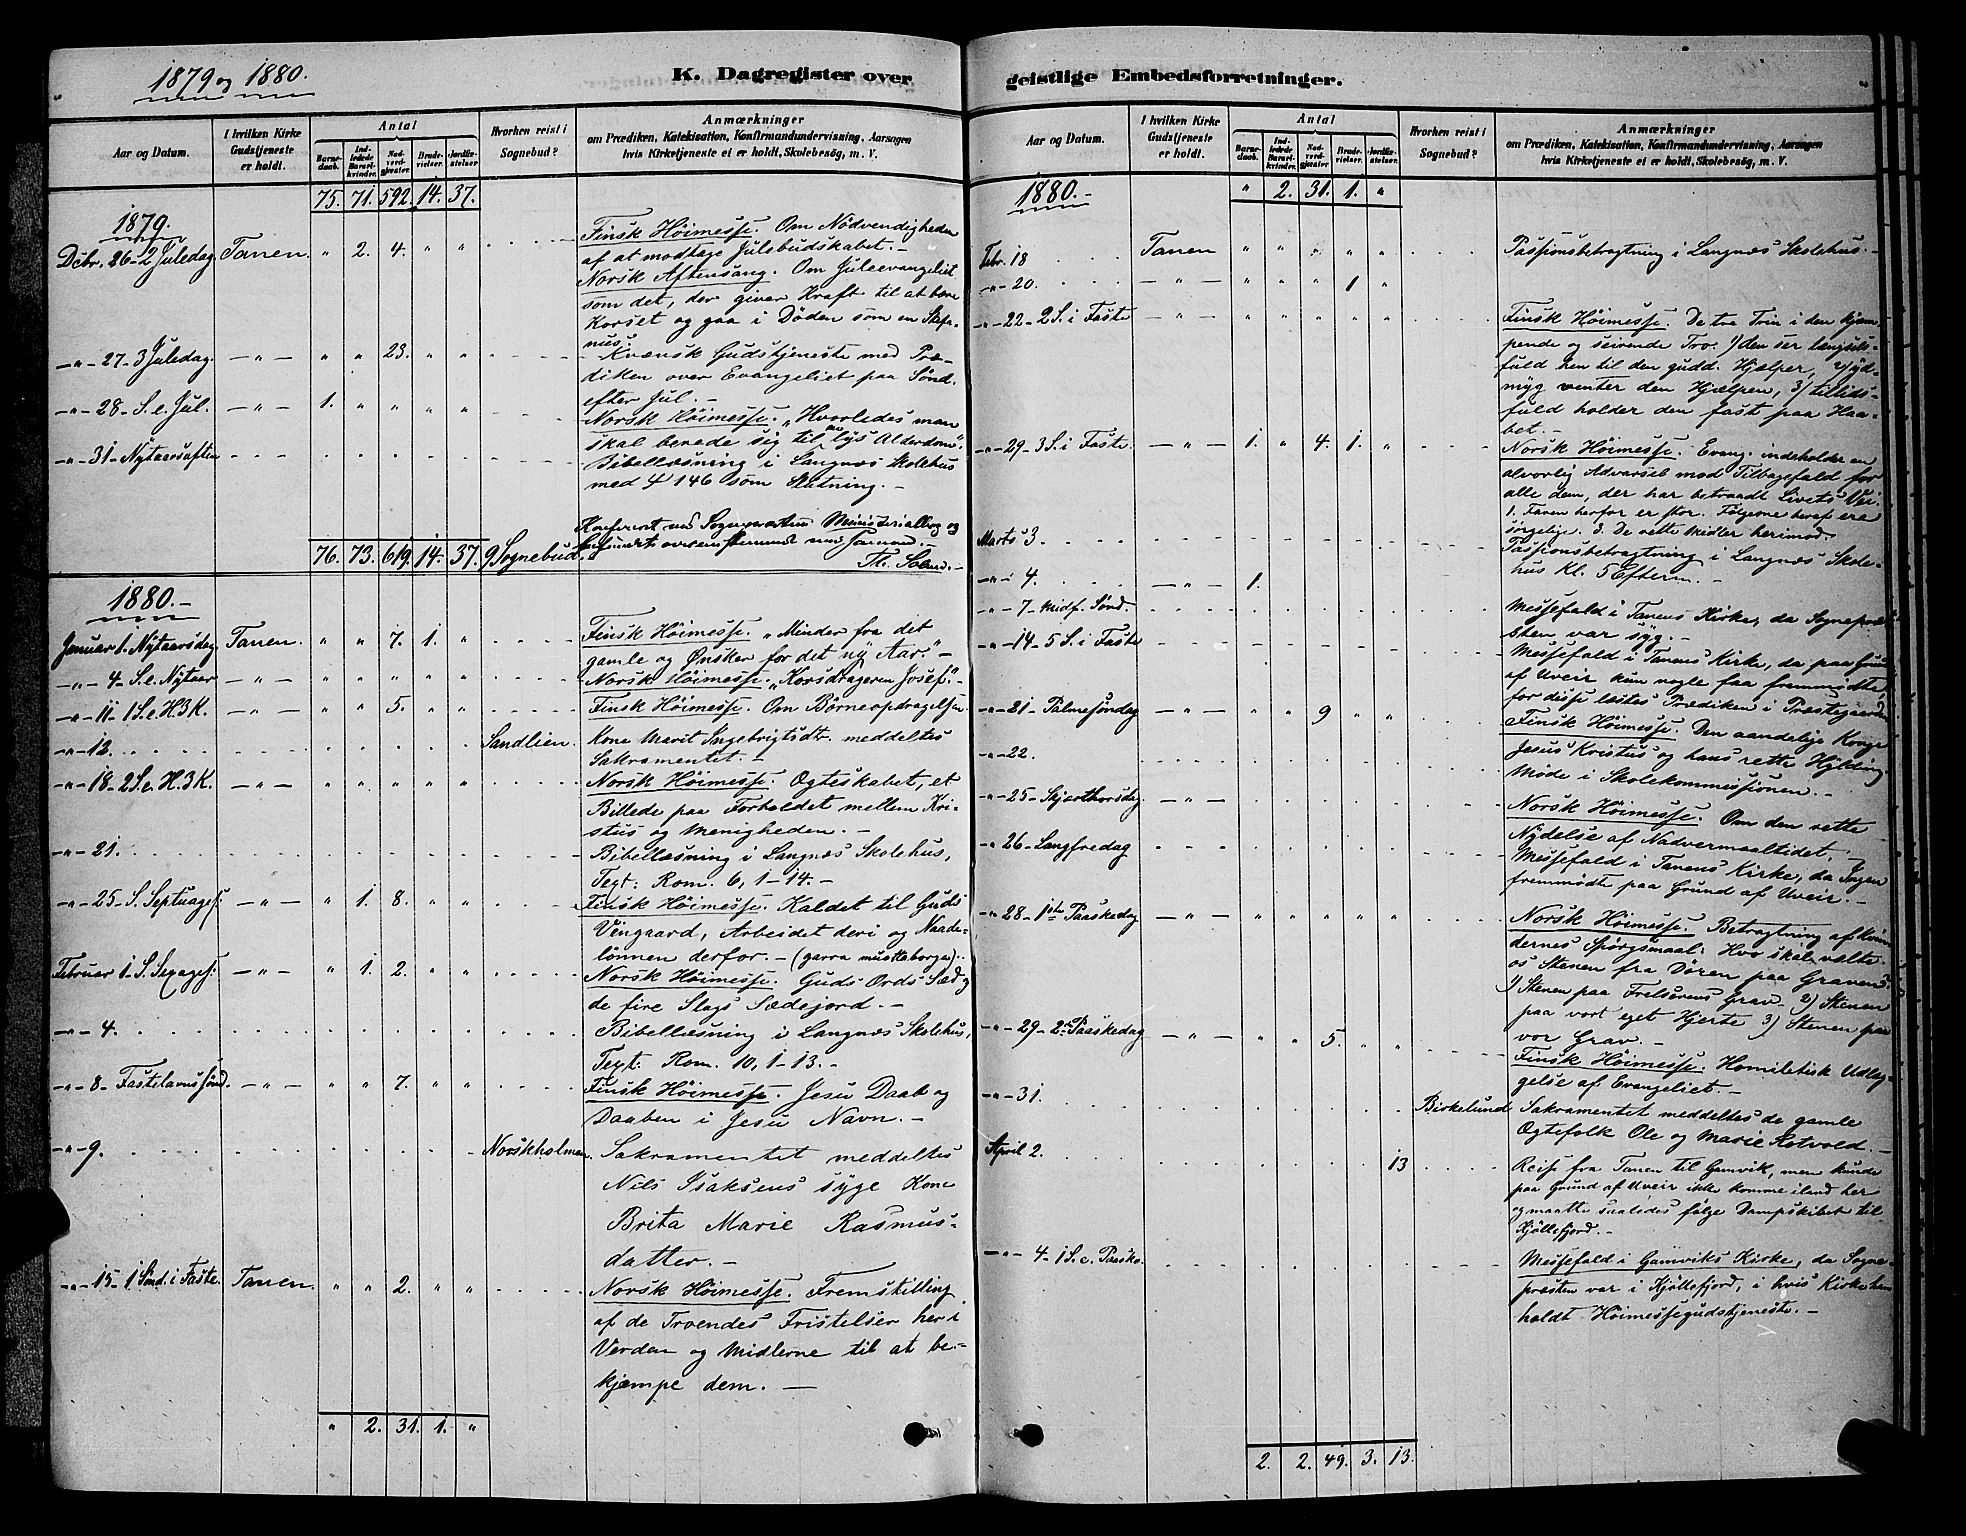 1879 og 1880.
K. Dagregister over
Aar og Datum.
I hvilken Kirke Gudstjeneste er holdt.
Antal
Barnedaab.
Indledede Barselkvinder.
Nadverdgjæster
Brudevielser.
Jordfæstelser
Hvorhen reist i Sognebud?
Anmærkninger
om Prædiken, Katekisation, Konfirmandundervisning, Aarsagen
hvis Kirketjeneste ei er holdt, Skolebesög, m. V.
75. 71. 592. 14. 37.
1879.
Dcbr. 26 - 2 Juledag. Tanen. " 2. 4. " "
Finsk Höimesse. Om Nödvendigheden
af at modtage Julebudskabet. -
Norsk Aftensang. Om Juleevangeliet
som det, der giver Kraft til at bære
Korset og gaa i Döden som en Stefa-
nus.
-"- 27 - 3 Juledag. -"- " " 23. " "
Kvænsk Gudstjeneste med Præ-
diken over Evangeliet paa Sönd.
efter Jul. -
-"- 28 - S. e. Jul. -"- 1. " " " "
Norsk Höimesse. "Hvorledes man
skal berede sig til en lys Alderdom".
-"- 31 - Nytaarsaften
Bibellæsning i Langnæs Skolehus
med ψ 146 som Slutning. -
Konfereret med Sognepræstens Ministerialbog og
befundet overensstemmende med samme. -
76. 73. 619. 14. 37. 9 Sognebud.
1880. -
Januar 1. Nytaarsdag. Tanen. " " 7. 1. "
Finsk Höimesse. "Minder fra det
gamle og Ønsker for det ny Aar". -
-"- 4 - S. e. Nytaar -"- " " " " "
Norsk Höimesse. "Korsdrageren Josef". -
-"- 11 - 1 S. e. H. 3 K. -"- " " 5. " "
Finsk Höimesse. Om Börneopdragelsen.
-"- 12. Sandlien.
Kone Marit Ingebrigtsdtr. meddeltes
Sakramentet. -
-"- 18 - 2 S. e. H. 3 K. -"- " " " " "
Norsk Höimesse. Ægteskabet, et
Billede paa Forholdet mellem Kri-
stus og Menigheden. -
-"- 21.
Bibellæsning i Langnæs Skolehus,
Text: Rom. 6, 1-14. -
-"- 25 - S. Septuages: -"- " 1. 8. " "
Finsk Höimesse. Kaldet til Guds
Vingaard, Arbeidet deri og Naade-
lönnen derfor. -
Februar 1. S. Sexages: -"- " 1. 2. " "
Norsk Höimesse. Guds Ords Sæd og
de fire Slags Sædejord. -
-"- 4.
Bibellæsning i Langnæs Skolehus,
Text: Rom. 10, 1-13. -
-"- 8 - Fastelavnssönd. -"- " " 7. " "
Finsk Höimesse. Jesu Daab og
Daaben i Jesu Navn. -
-"- 9. Norskholmen.
Sakramentet meddeltes
Nils Isaksens syge Kone
Brita Marie Rasmus-
datter. -
-"- 15 - 1 Sönd. i Faste. Tanen. " " 2. " "
Norsk Höimesse. Fremstilling
af de Troendes Fristelser her i
Verden og Midlerne til at be-
kjæmpe dem. -
" 2. 31. 1. "
geistlige Embedsforretninger.
Aar og Datum.
I hvilken Kirke Gudstjeneste er holdt.
Antal
Barnedaab.
Indledede Barselkvinder.
Nadverdgjæster
Brudevielser.
Jordfæstelser.
Hvorhen reist i Sognebud?
Anmærkninger
om Prædiken, Katekisation, Konfirmandundervisning, Aarsagen
hvis Kirketjeneste ei er holdt, Skolebesög, m. V.
1880. - " 2. 31. 1. "
Febr. 18 Tanen " " " " "
Passionsbetragtning i Langnæs Skolehus. -
-"- 20. -"- " " " 1 "
-"- 22 - 2 S. i Faste -"- " " " " "
Finsk Höimesse. De tre Trin i den kjæm-
pende og seirende Tro. 1) den ser længsels-
fuld hen til den gudd. Hjælper, 2) yd-
myg venter den Hjælpen, 3) tillids-
fuld holder den fast paa Haa-
bet. -
-"- 29 - 3 S. i Faste. -"- 1. " 4. 1. "
Norsk Höimesse. Evang. indeholder en
alvorlig Advarsel mod Tilbagefald for
alle dem, der har betraadt Livets Vei.
1. Faren herfor er stor. Følgerne heraf ere
sörgelige. 3. De rette Midler herimod.
Marts 3.
Passionsbetragtning i Langnæs Skole-
hus Kl. 5 Efterm. -
-"- 4. -"- 1.
-"- 7 - Midf. Sönd.
Messefald i Tanens Kirke, da Sognepræ-
sten var syg. -
-"- 14 - 5 S. i Faste
Messefald i Tanens Kirke, da paa Grund
af Uveir kun nogle faa fremmödte,
for disse læstes Prædiken i Præstegaarden
-"- 21 - Palmesöndag -"- 9 " "
Finsk Höimesse. Den aandelige Konge
Jesus Kristus og hans rette Hylding
-"- 22.
Möde i Skolekommissionen. -
-"- 25 - Skjærthorsdag. -"-
Norsk Höimesse. Om den rette
Nydelse af Nadvermaaltidet. -
-"- 26 - Langfredag
Messefald i Tanens Kirke, da Ingen
fremmödte paa Grund af Uveir. -
-"- 28 - 1ste Paaskedag -"- " " " " "
Norsk Höimesse. Betragtning af Kvin-
dernes Spörgsmaal: Hvo skal vælte
os Stenen fra Dören paa Graven?
1) Stenen paa Frelserens Grav 2) Stenen
paa vort eget Hjerte 3) Stenen paa
vor Grav. -
-"- 29 - 2. Paaskedag -"- " " 5. " "
Finsk Höimesse. Homiletisk Udlæg-
gelse af Evangeliet. -
-"- 31. Birkelund
Sakramentet meddeltes de gamle
Ægtefolk Ole og Marie Kotvold. -
April 2. 13
Reise fra Tanen til Gamvik, men kunde
paa Grund af Uveir ikke komme iland her
og maatte saaledes fölge Dampskibet til
Kjöllefjord. -
-"- 4 - 1 S. e. Paaske.
Messefald i Gamviks Kirke, da Sogne-
præsten var i Kjöllefjord, i hvis Kirke han
holdt Höimessegudstjeneste. -
2. 2. 49. 3. 13.